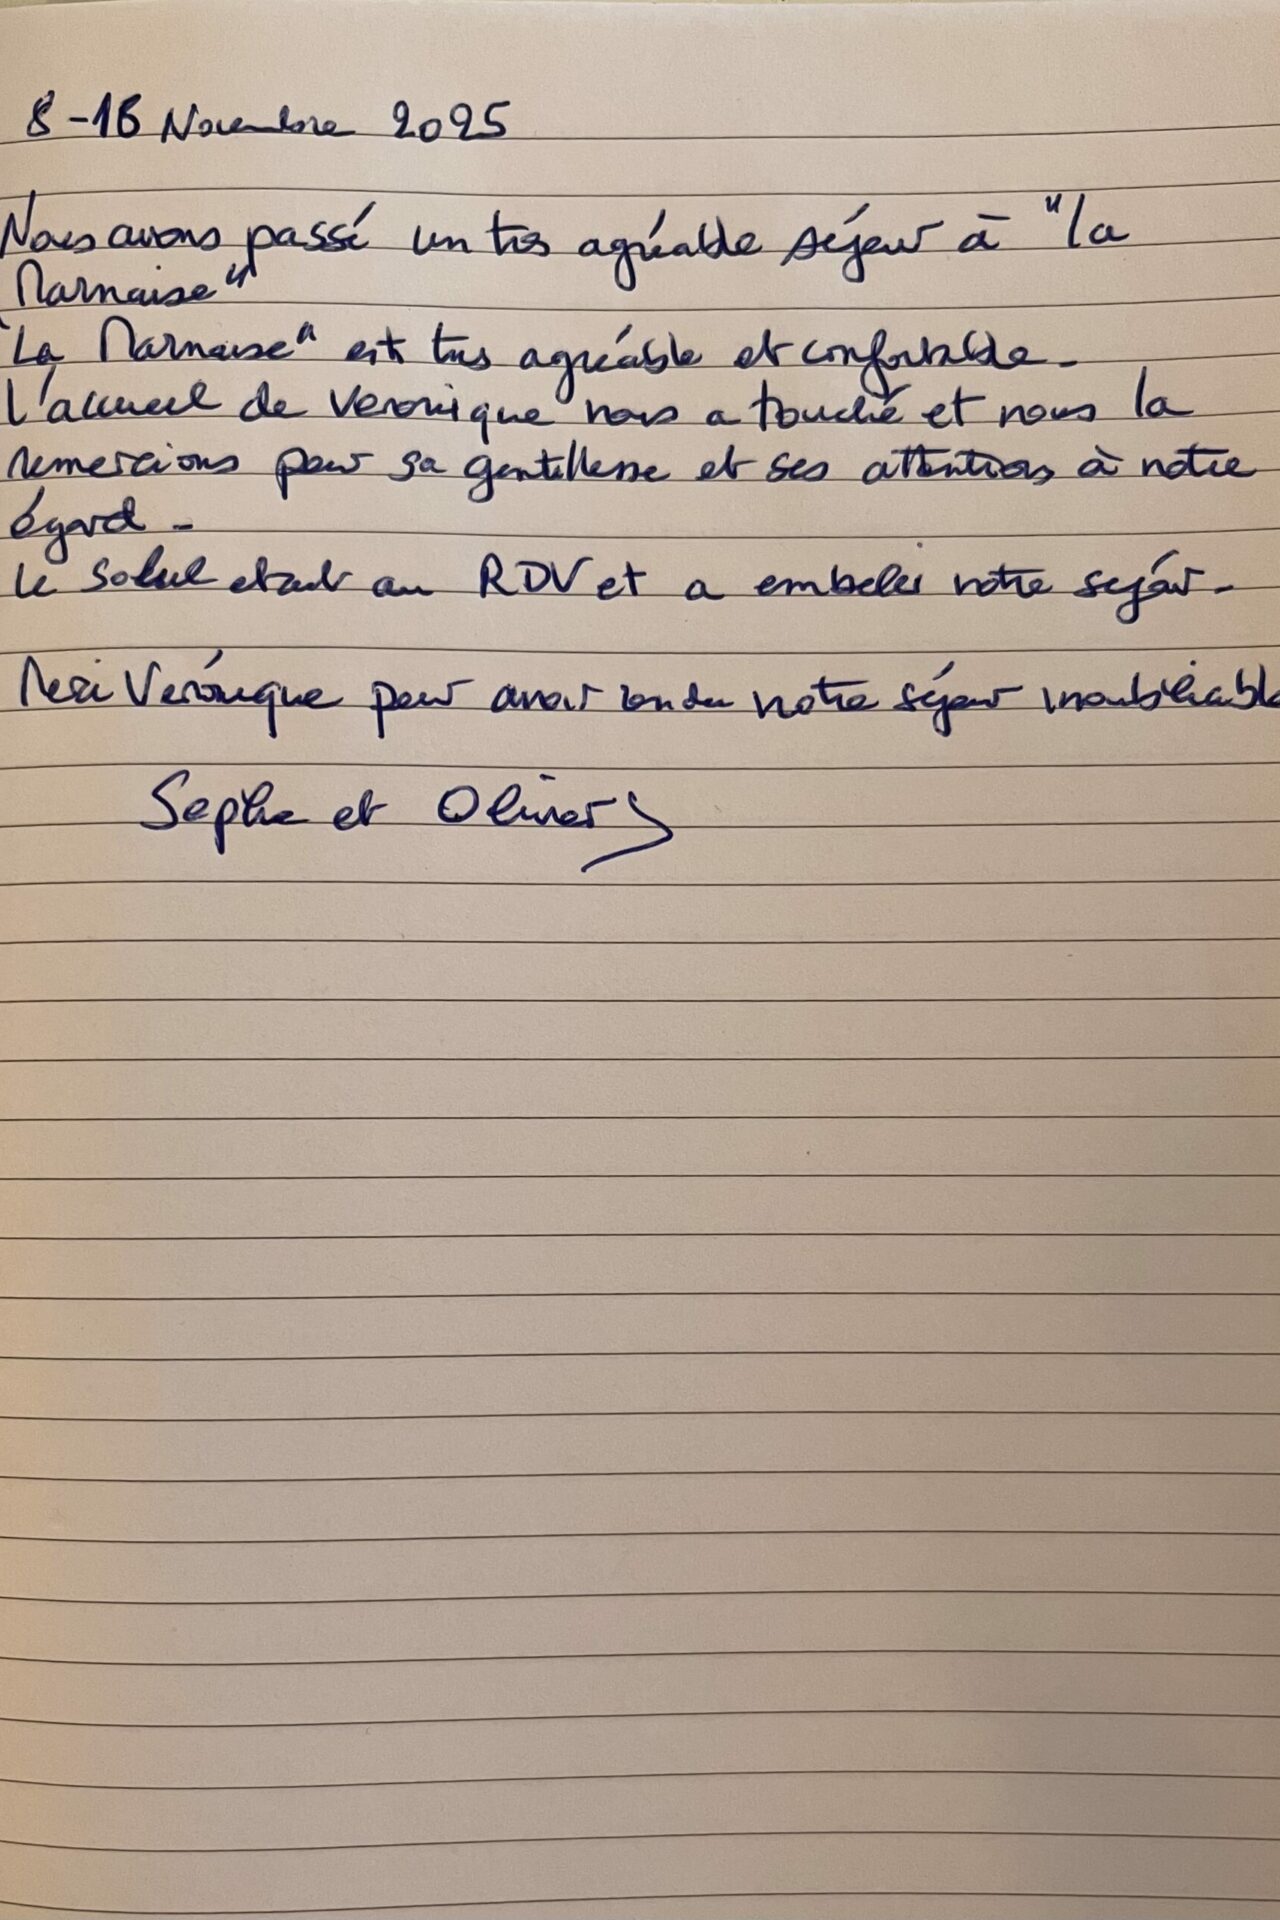 8-16 Novembre 2025
Nous avons passé un très agréable séjour à "la
Marnaise"
"La Marnaise" est très agréable et confortable.
L'accueil de Veronique nous a touché et nous la
remercions pour sa gentillesse et ses attentions à notre
égard.
Le soleil etait au RDV et a embelli notre séjour.
Merci Véronique pour avoir rendu notre séjour inoubliable
et Olivier